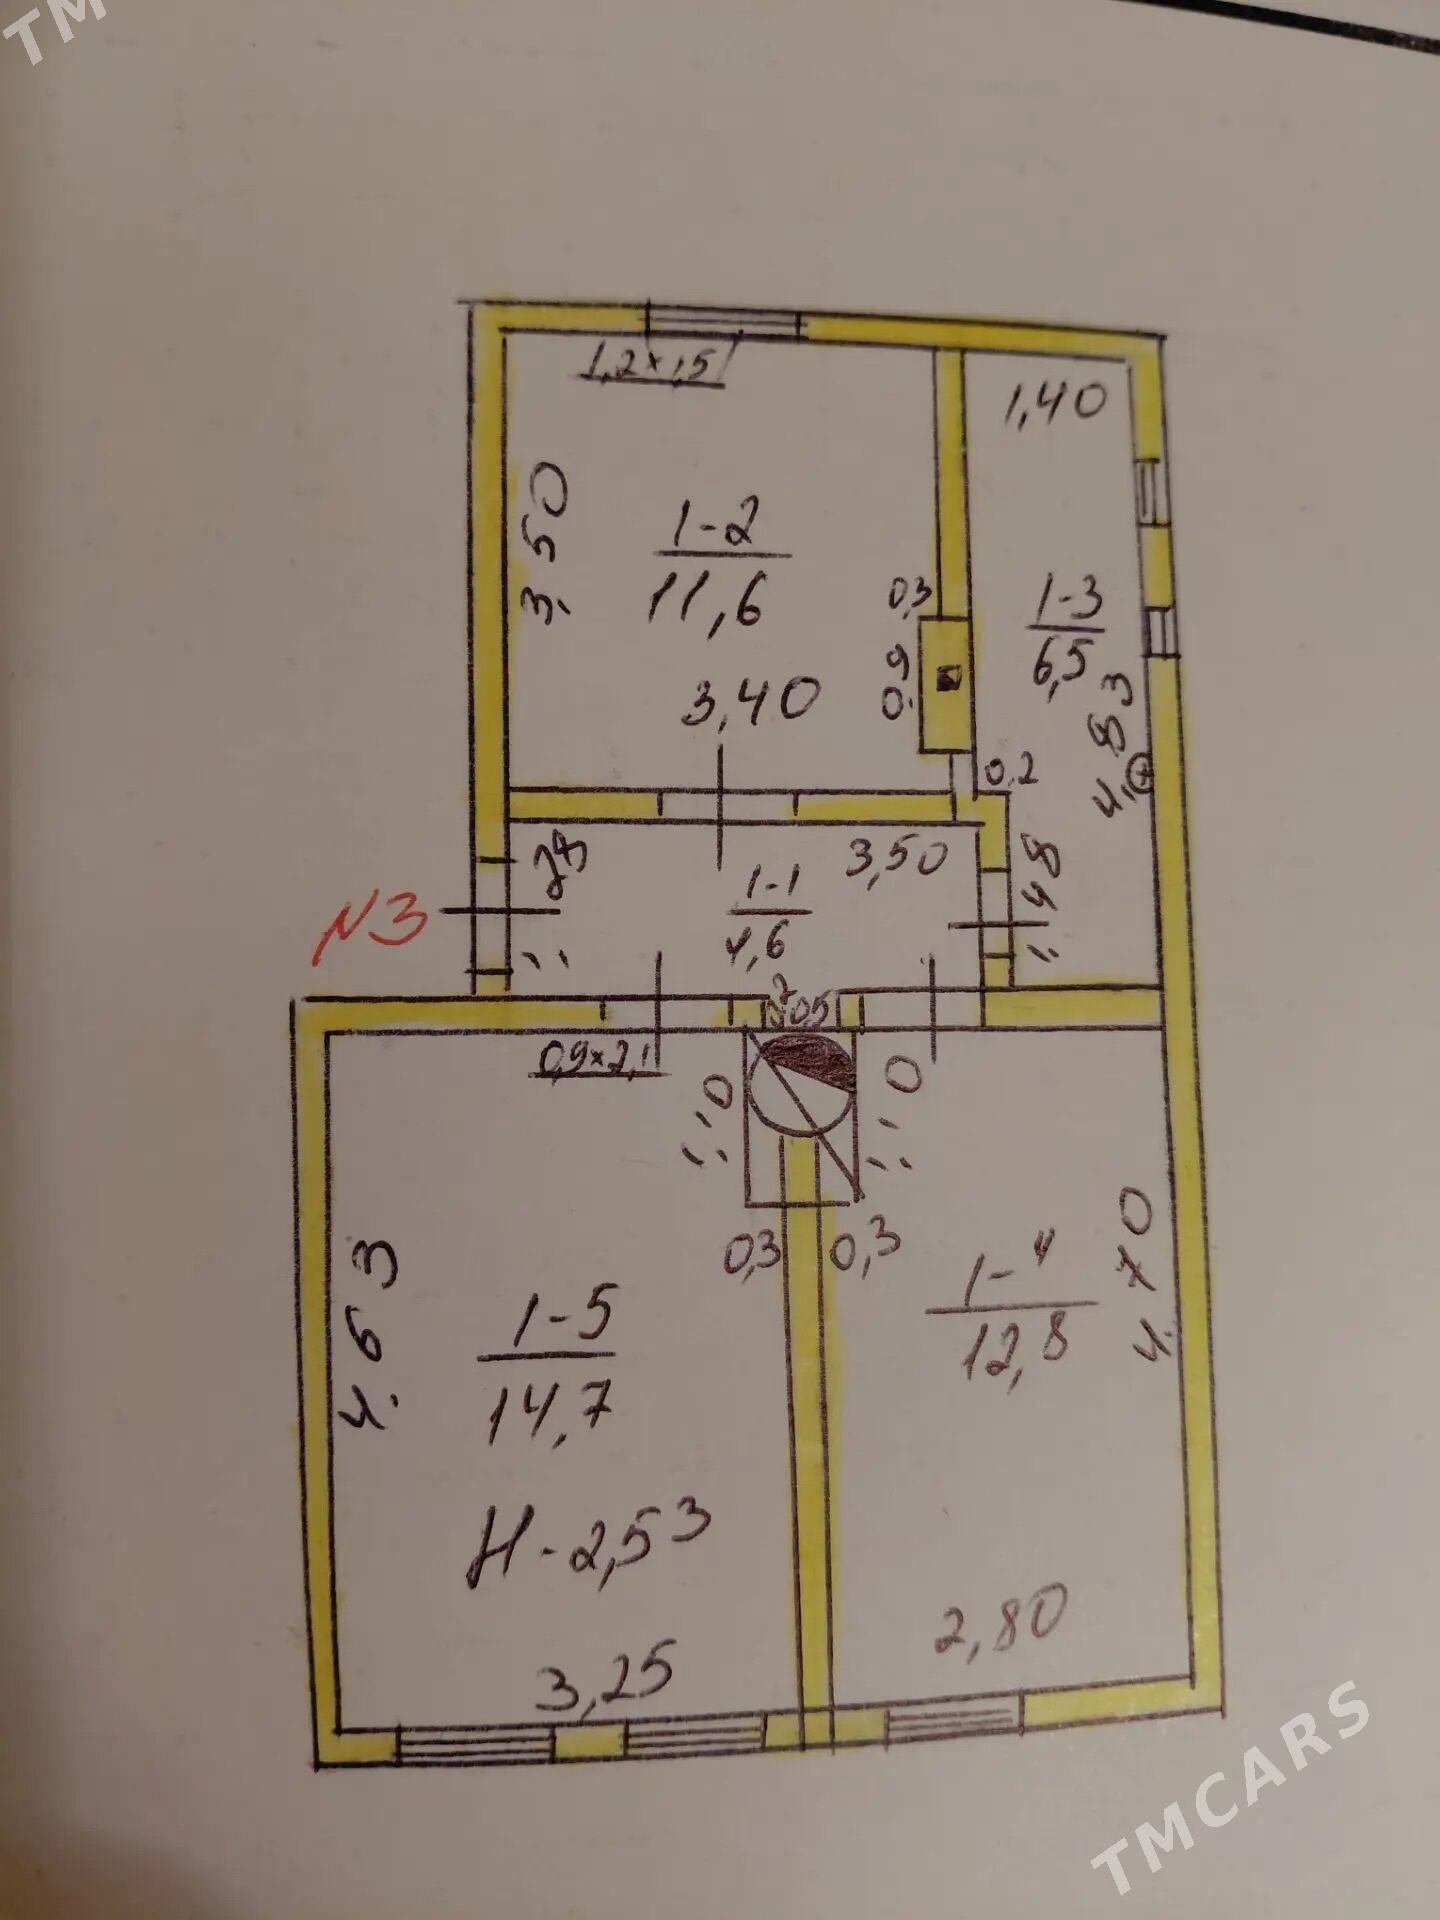 TM
1,2×1,5
1,40
3,50
1-2
11,6
0,3
0,9
1-3
6,5
3,40
4,83
0,2
3,50
1-1
4,6
N3
0,5
0,9×2,1
0,3
0,3
4,63
1-5
14,7
1-4
12,8
4,70
H-2,53
3,25
2,80
TMCARS